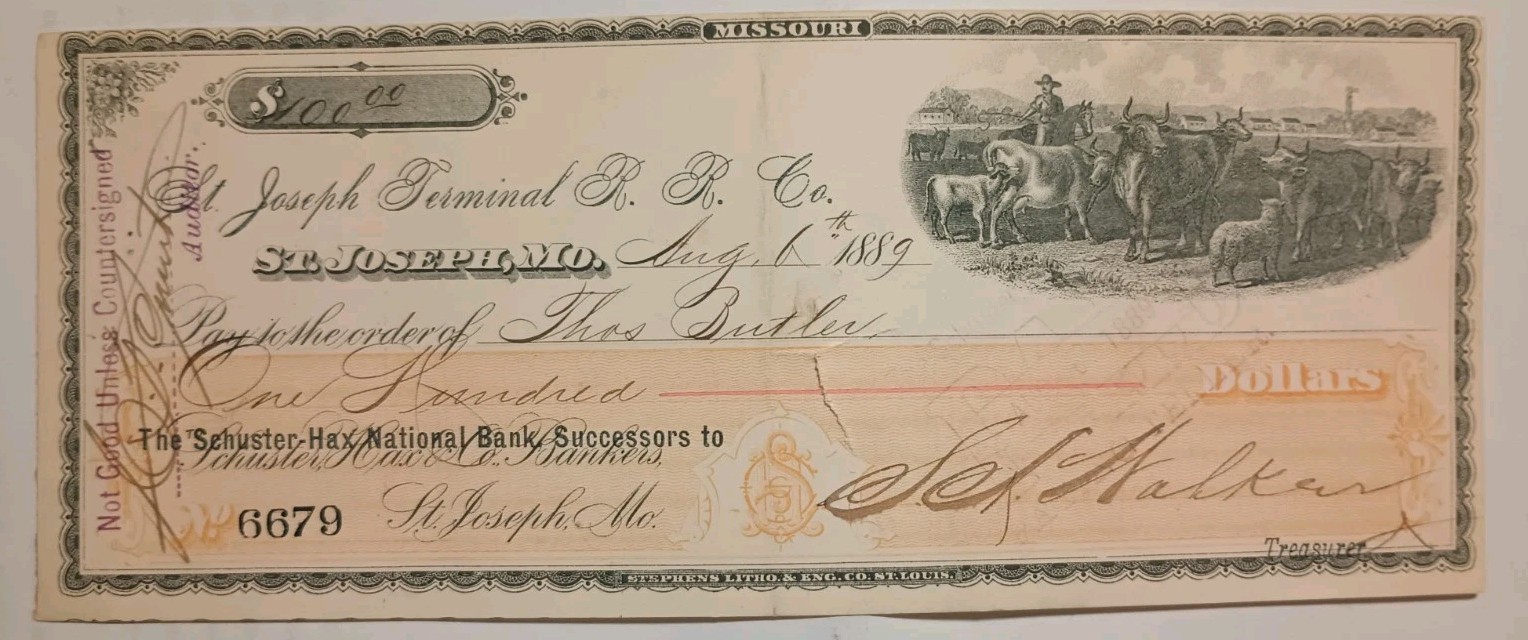 MISSOURI
$100 00
St Joseph Terminal R. R. Co.
ST. JOSEPH, MO. Aug. 6th 1889
Pay to the order of Thos Butler
One Hundred Dollars
The Schuster-Hax National Bank, Successors to
Schuster, Hax & Co., Bankers,
No 6679 St. Joseph, Mo.
Walker
Treasurer
Not Good Unless Countersigned
Auditor.
STEPHENS LITHO. & ENG. CO. ST. LOUIS.